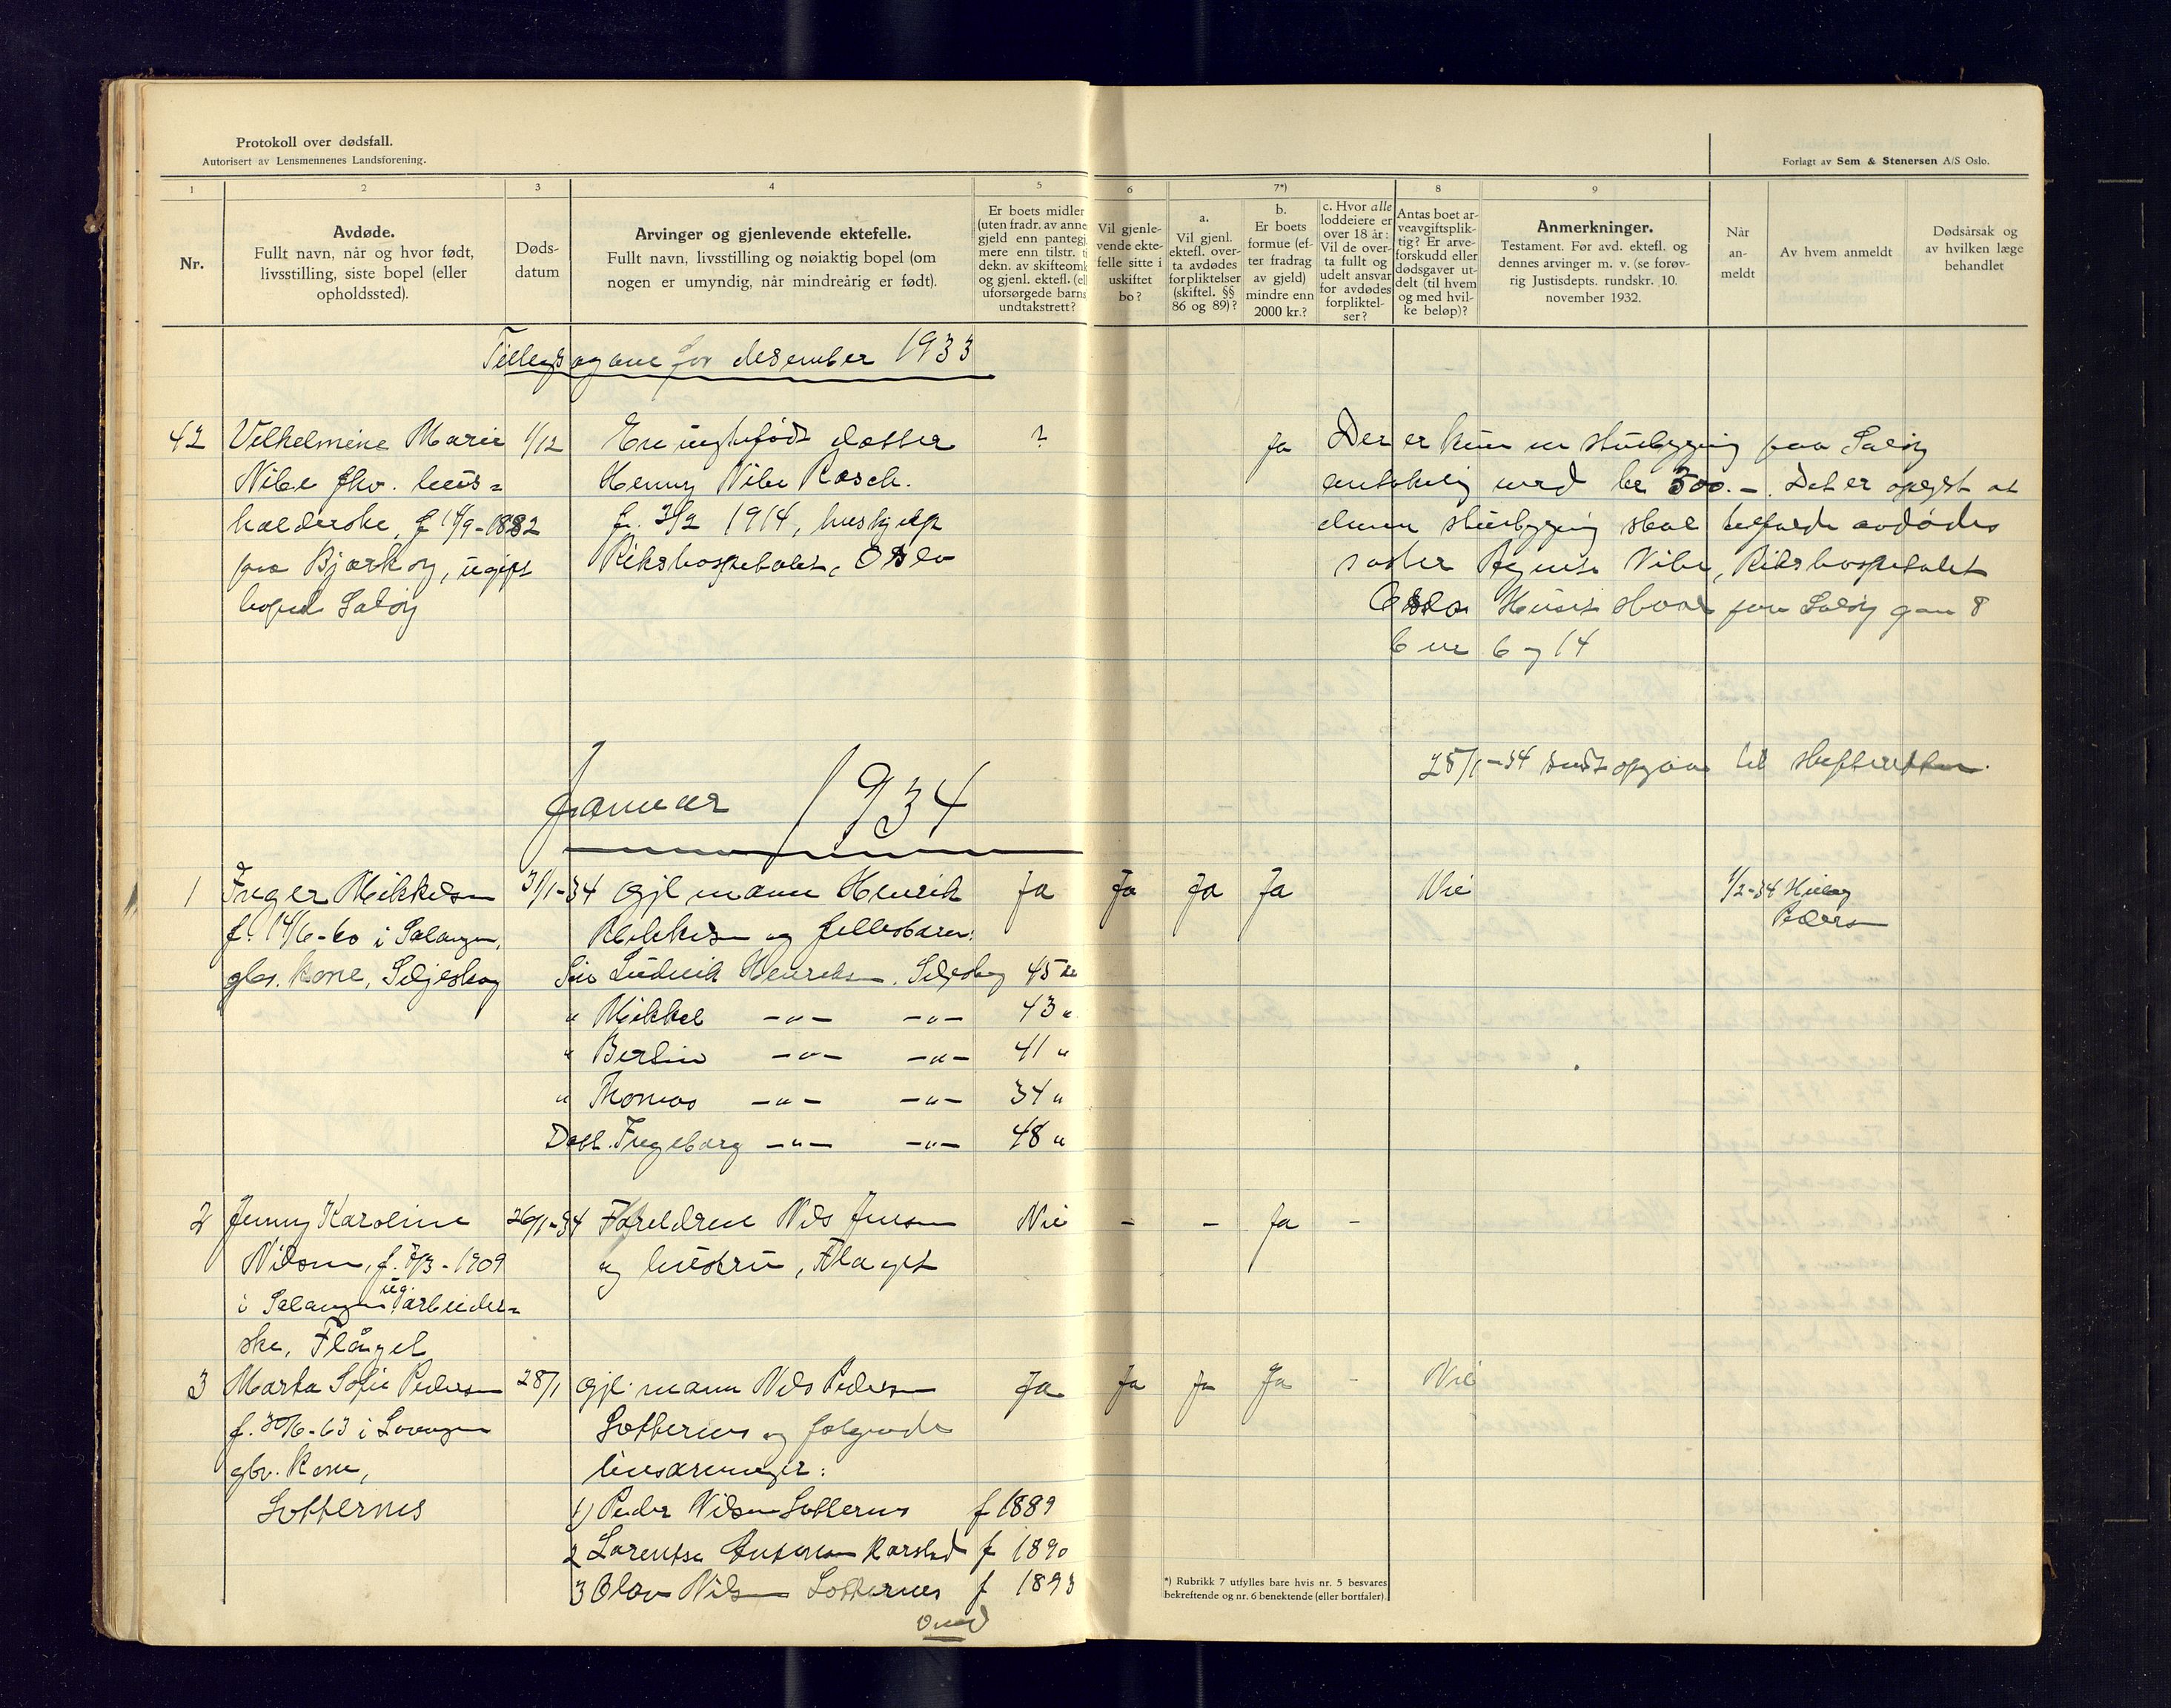 Protokoll over dødsfall.
Autorisert av Lensmennenes Landsforening.
Forlagt av Sem & Stenersen A/S Oslo.
1 2 3 4 5 6 7*) 8 9
Nr.
Avdøde.
Fullt navn, når og hvor født,
livsstilling, siste bopel (eller
opholdssted).
Døds-
datum
Arvinger og gjenlevende ektefelle.
Fullt navn, livsstilling og nøiaktig bopel (om
nogen er umyndig, når mindreårig er født).
Er boets midler
(uten fradr. av anne
gjeld enn pantegj.
mere enn tilstr. ti
dekn. av skifteomk
og gjenl. ektefl. (el
uforsørgede barns
undtakstrett?
Vil gjenle-
vende ekte-
felle sitte i
uskiftet
bo?
a.
Vil gjenl.
ektefl. over-
ta avdødes
forpliktelser
(skiftel. §§
86 og 89)?
b.
Er boets
formue (ef-
ter fradrag
av gjeld)
mindre enn
2000 kr.?
c. Hvor alle
loddeiere er
over 18 år:
Vil de over-
ta fullt og
udelt ansvar
for avdødes
forpliktel-
ser?
Antas boet ar-
veavgiftsplik-
tig? Er arve-
forskudd eller
dødsgaver ut-
delt (til hvem
og med hvil-
ke beløp)?
Anmerkninger.
Testament. Før avd. ektefl. og
dennes arvinger m. v. (se forøv-
rig Justisdepts. rundskr. 10.
november 1932.
Når
an-
meldt
Av hvem anmeldt
Dødsårsak og
av hvilken læge
behandlet
for desember 1933
42 Vilhelmine Marie 1/12 En datter ? Ja Der er kun en stuebygging paa Saløy
Nibe fhv. hus= Henny Nibe Rasch. med kr 500.-. Det er opgit at
holderske, f 14/9-1882 f. 1914, hushjelp denne stuebygging skal avdødes
fra Bjarkøy, ugift Rikshospitalet, Oslo søster Nibe, Rikshospitalet
bopel Saløy Oslo Huset staar paa Saløy gnr 8
bnr 6 og 14
25/1-34 sendt opgave til skifteretten.
Januar 1934
1 Inger Mikkelsen 31/1-34 Gjl mann Henrik Ja Ja Ja Ja Nei 1/2-34
f. 14/6-60 i Salangen, Mikkelsen og fellesbarn: Pedersen
gbr. kone, Seljeskog Søn Ludvik Henriksen. Seljeskog 45 år
" Mikkel -"- -"- 43 "
" Berlin -"- -"- 41 "
" Thomas -"- -"- 34 "
Datt. Ingeborg -"- -"- 48 "
2 Jenny Karoline 26/1-34 Foreldrene Nils Jensen Nei - - Ja -
Nilsen, f. -1909 og hustru, Flaget
i Salangen ug. arbeider=
ske, Flåget
3 Marta Sofie Pedersen 28/1 Gjl. mann Nils Pedersen Ja Ja Ja Ja - Nei
f. 30/6-63 i Lavangen Lotternes og følgende
gbr. kone, livsarvinger:
Lotternes 1) Peder Nilsen Lotternes f 1889
2 Lorentse Karstad f 1890
3 Olav Nilsen Lotternes f 1893
*) Rubrikk 7 utfylles bare hvis nr. 5 besvares
bekreftende og nr. 6 benektende (eller bortfaller)